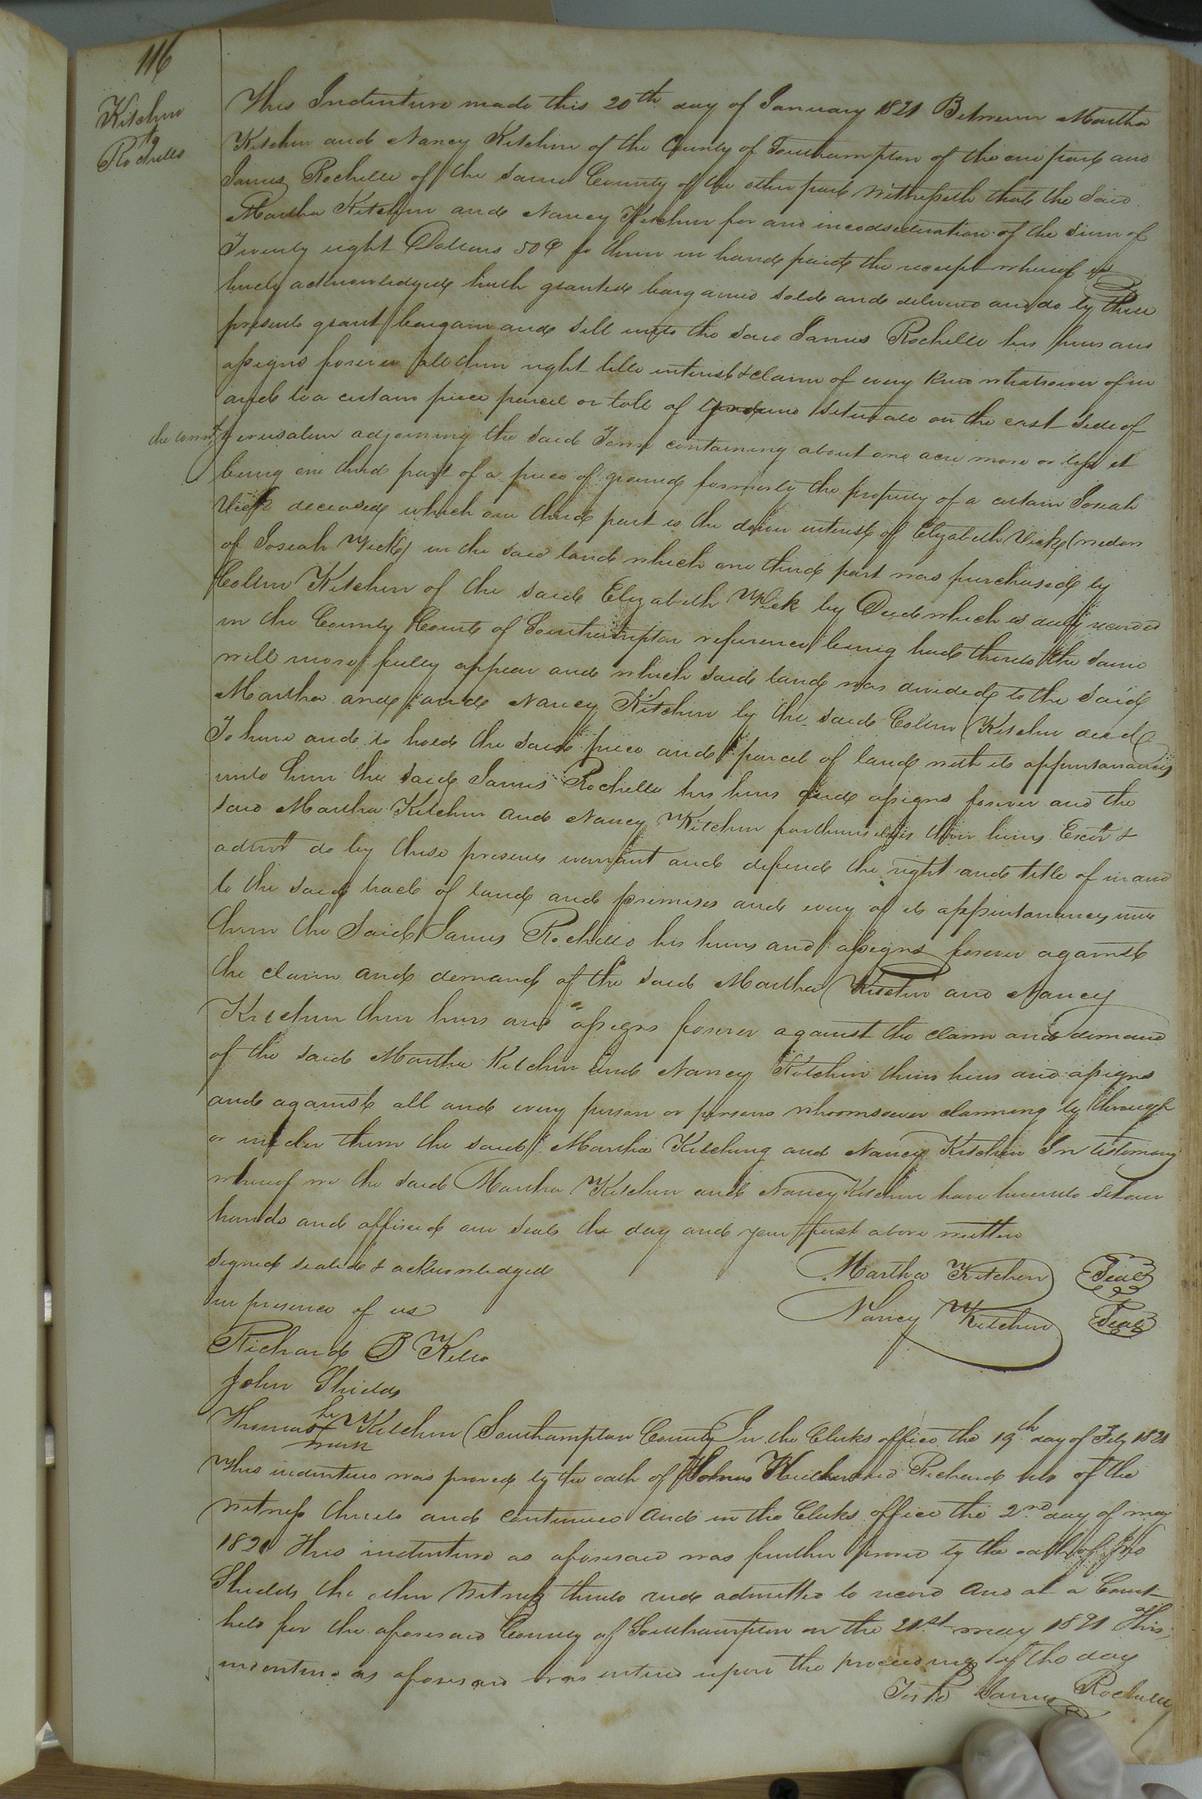 116
Kitchen
to
Rochelle
This Indenture made this 20th day of January 1821 Between Martha
Kitchen and Nancy Kitchen of the County of Southampton of the one part and
James Rochelle of the same County of the other part Witnesseth that the said
Martha Kitchen and Nancy Kitchen for and in consideration of the sum of
Twenty eight Dollars 50 to them in hand paid the receipt whereof is
hereby acknowledged hath granted bargained sold and delivered and do by these
presents grant bargain and sell unto the said James Rochelle his heirs and
assigns forever all their right title interest & claim of every kind whatsoever of in
and to a certain piece parcel or lott of ground situate on the east side of
Jerusalem adjoining the said Town containing about one acre more or less it
being one third part of a piece of ground formerly the property of a certain Josiah
Vick deceased which one third part is the dower interest of Elizabeth Vick (widow
of Josiah Vick) in the said land which one third part was purchased by
Collin Kitchen of the said Elizabeth Vick by Deed which is duly recorded
in the County Court of Southampton reference being had thereto the same
will more fully appear and which said land was divided to the said
Martha and and Nancy Kitchen by the said Collin Kitchen decd
To have and to hold the said piece and parcel of land with its appurtanances
unto him the said James Rochelle his heirs and assigns forever and the
said Martha Kitchen and Nancy Kitchen for themselves their heirs Exors &
admrs do by these presents warrant and defend the right and title of in and
to the said track of land and premises and every of its appurtanances unto
him the said James Rochelle his heirs and assigns forever against
the claim and demand of the said Martha Kitchen and Nancy
Kitchen their heirs and assigns forever against the claim and demand
of the said Martha Kitchen and Nancy Kitchen their heirs and assigns
and against all and every person or persons whomsoever claiming by through
or under them the said Martha Kitching and Nancy Kitchen In testimony
whereof we the said Martha Kitchen and Nancy Kitchen have hereunto set our
hands and affixed our seals the day and year first above written
signed sealed & acknowledged
in presence of us
Martha Kitchen Seal
Nancy Kitchen Seal
Richard B Kello
John Shields
Thomas his X mark Kitchen
Southampton County In the Clerks office the 19th day of Feby 1821
This indenture was proved by the oath of Thomas Kitchen and Richard of the
witness thereto and continued And in the Clerks office the 2nd day of may
1821 This indenture as aforesaid was further proved by the oath of Jno
Shields the other Witness thereto and admitted to record And at a Court
held for the aforesaid County of Southampton on the 21st may 1821 This
indenture as aforesaid was entered upon the proceedings of the day
Teste James Rochelle